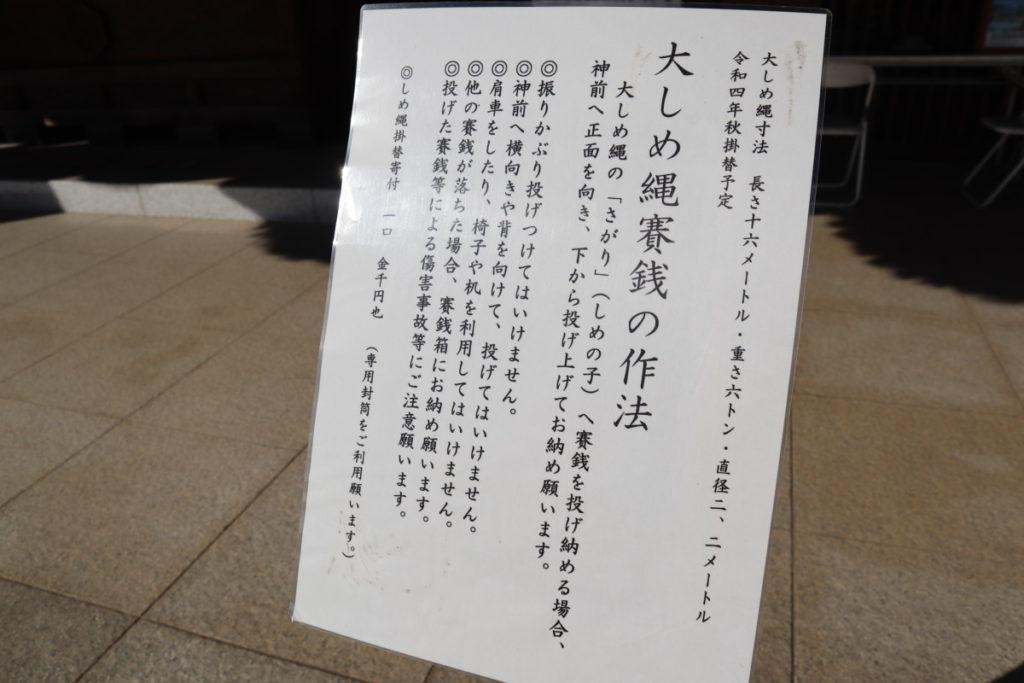 大しめ縄寸法　長さ十六メートル・重さ六トン・直径二、二メートル
令和四年秋掛替予定
大しめ縄賽銭の作法
大しめ縄の「さがり」（しめの子）へ賽銭を投げ納める場合、
神前へ正面を向き、下から投げ上げてお納め願います。
◎振りかぶり投げつけてはいけません。
◎神前へ横向きや背を向けて、投げてはいけません。
◎肩車をしたり、椅子や机を利用してはいけません。
◎他の賽銭が落ちた場合、賽銭箱にお納め願います。
◎投げた賽銭等による傷害事故等にご注意願います。
◎しめ縄掛替寄付　一口　金千円也　（専用封筒をご利用願います。）